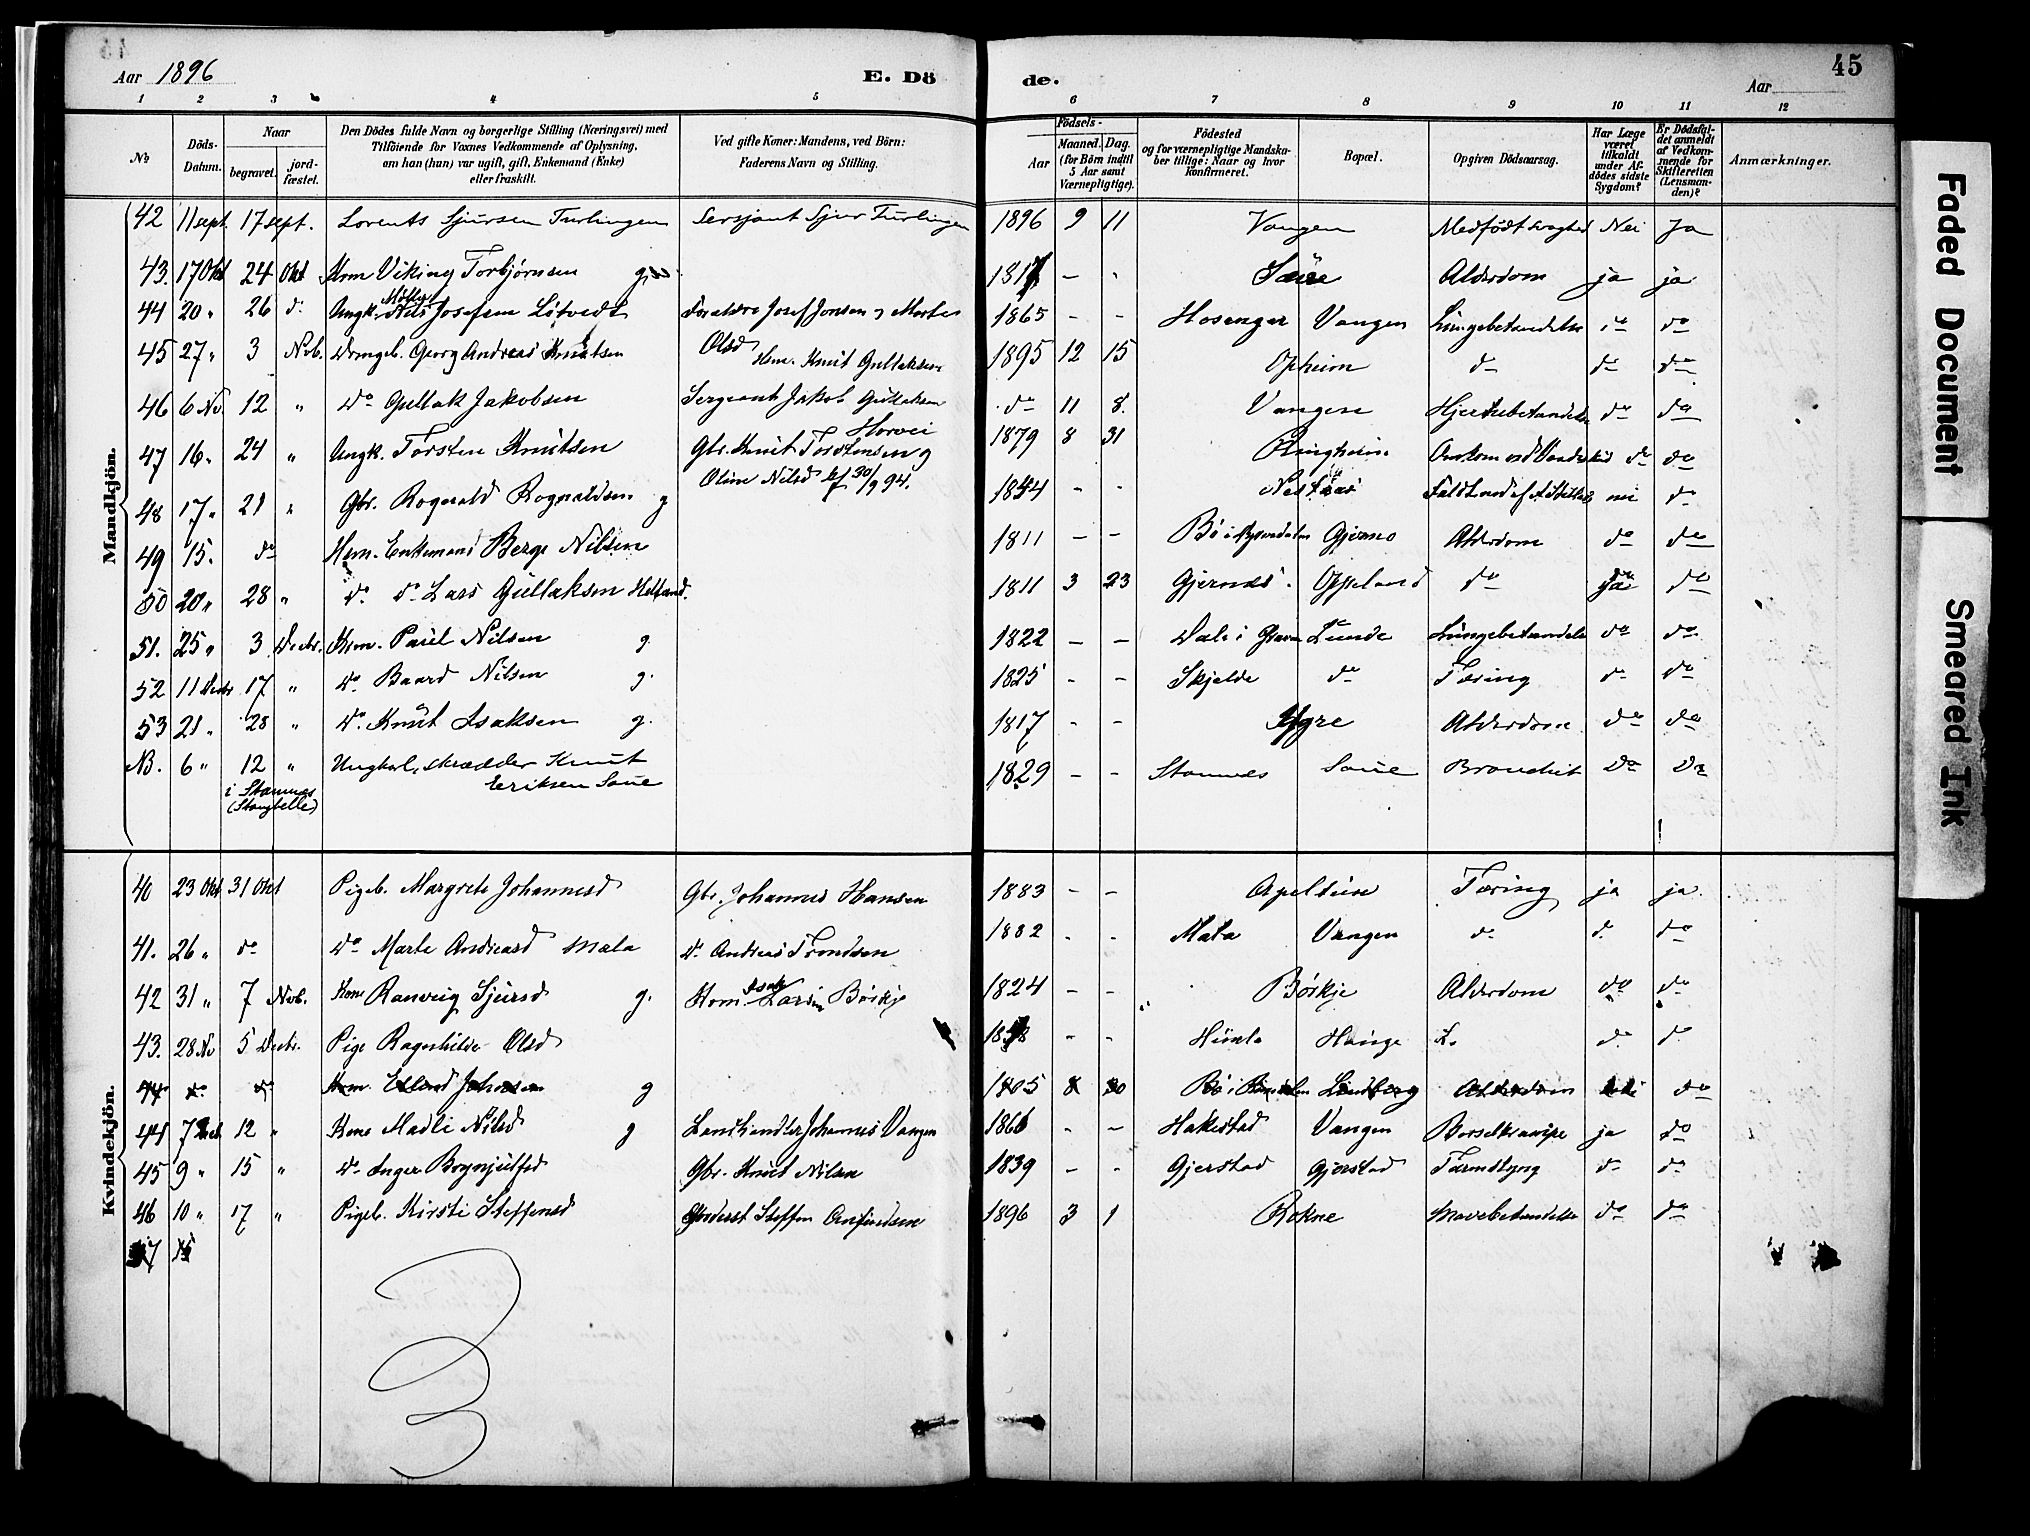 Aar 1896
E. Dö
de.
45
Aar
1 2 3 4 5
6 7 8 9 10 11 12
No
Döds-Datum.
Naar
begravet.
jordfæstet.
Den Dödes fulde Navn og borgerlige Stilling (Næringsvei) med
Tilföiende for Voxnes Vedkommende af Oplysning,
om han (hun) var ugift, gift, Enkemand (Enke)
eller fraskilt.
Ved gifte Koner: Mandens, ved Börn:
Faderens Navn og Stilling.
Födsels-
Aar
Maaned. Dag.
(for Börn indtil
5 Aar samt
Værnepligtige).
Födested
og for værnepligtige Mandskaber tillige: Naar og hvor
konfirmeret.
Bopæl.
Opgiven Dödsaarsag.
Har Læge
været
tilkaldt
under Afdödes sidste
Sygdom?
Er Dödsfaldet anmeldt
af Vedkommende for
Skifteretten
(Lensmanden)?
Anmærkninger.
Mandkjön.
42 11 sept. 17 sept. Lorents Sjursen Turlingen Sersjant Sjur Turlingen 1896 9 11 Vangen Medfödt svaghed Nei Ja
43. 17 Okt 24 Okt Kom Viking Torbjørnsen g. 1817 - - Saue Alderdom ja ja
44 20 " 26 d: Ungk. Nils Josefsen Lötvedt Forældre Josef Jonsen og Marte 1865 - - Hosenger Vangen Lungebetændelse do do
45 27 " 3 Nvb. Drengb. Georg Andreas Knutsen Olsd Hem. Knut Gullaksen 1895 12 15 Opheim do do do
46 6 Nv. 12 " do Gullak Jakobsen Sergeant Jakob Gullaksen do 11 8. Vangen Hjertebetændelse do do
Horvei
47 16 " 24 " Ungk. Torsten Knutsen Gbr. Knut Torstensen og 1879 8 31 Ringheim do do
Oline Nilsd kf 30/9 94.
48 17 " 21 " Gbr. Rognald Rognaldsen g 1854 - - Nestaas nei do
49 15. do Hem. Enkemand Berge Nilsen 1811 - - Bö i Gjerme Alderdom do do
50 20 " 28 " do do Lars Gullaksen Helland. 1811 3 23 Gjernes. Oppeland do Ja do
51. 25 " 3 Decbr. Kom. Paul Nilsen g. 1822 - - Dale i Graven Lunde Lungebetændelse do do
52 11 Decbr 17 " do Baard Nilsen g. 1825 - - Skjelde do Tæring do do
53 21 " 28 " do Knut Isaksen g. 1817 - - Ygre Alderdom do do
NB. 6 " 12 " Ungkarl, skrædder Knut 1829 - - Stamnes Saue Brandsit do do
i Stamnes Eriksen Saue
(Stanghelle)
Kvindekjön.
40 23 Okt 31 Okt Pigeb. Margrete Johannesd Gbr. Johannes Hansen 1883 - - Apeltun Tæring ja ja
41. 26 " do do Marte Andreasd Mala do Andreas Trondsen 1882 - - Mala Vangen do do do
42 31 " 7 Nvb. Kone Ranveig Sjursd g. Kom. Isak Larsen Börkje 1824 - - Börkje Alderdom do do
43. 28 Nv 5 Decbr. Pige Ragnhilde Olsd 1858 - - Himle Hauge do do
44 do do Kom. Erland Johnsen g 1805 8 20 Bö i Lindberg Alderdom nei do
44 7 Decb 12 " Kone Madli Nilsd g Landhandler Johannes Vangen 1866 - - Hakestad Vangen Barselkrampe ja do
45 9 " 15 " do Inger Brynjulfsd Gbr. Knut Nilsen 1839 - - Gjerstad Gjerstad Tarmslyng do do
46 10 " 17 " Pigeb. Kirsti Steffensd Steffen Anfindsen 1896 3 1 Rokne Mavebetændelse do do
47 15
Faded Document
Smeared Ink